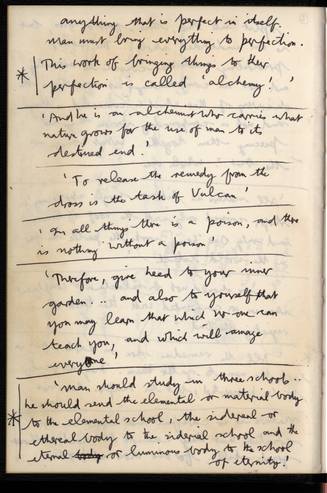 anything that is perfect in itself.
Man must bring everything to perfection.
* This work of bringing things to their
perfection is called 'alchemy'!'
'And he is an alchemist who carries what
nature grows for the use of man to its
destined end.'
'To release the remedy from the
dross is the task of Vulcan'
'In all things there is a poison, and there
is nothing without a poison'
'Therefore, give heed to your inner
garden... and also to yourself that
you may learn that which no-one can
teach you, and which will amaze
everyone'
'Man should study in three schools..
he should send the elemental or material body
* to the elemental school, the sidereal or
ethereal body to the siderial school and the
eternal or luminous body to the school
of eternity!'